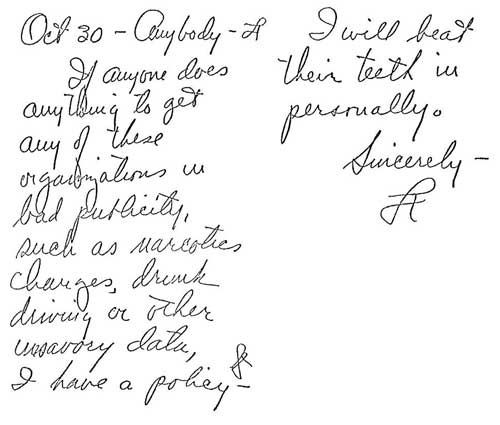 Oct 30 - Anybody - H
If anyone does
anything to get
any of these
organizations in
bad publicity,
such as narcotics
charges, drunk
driving or other
unsavory data,
I have a policy -
I will beat
their teeth in
personally.
Sincerely -